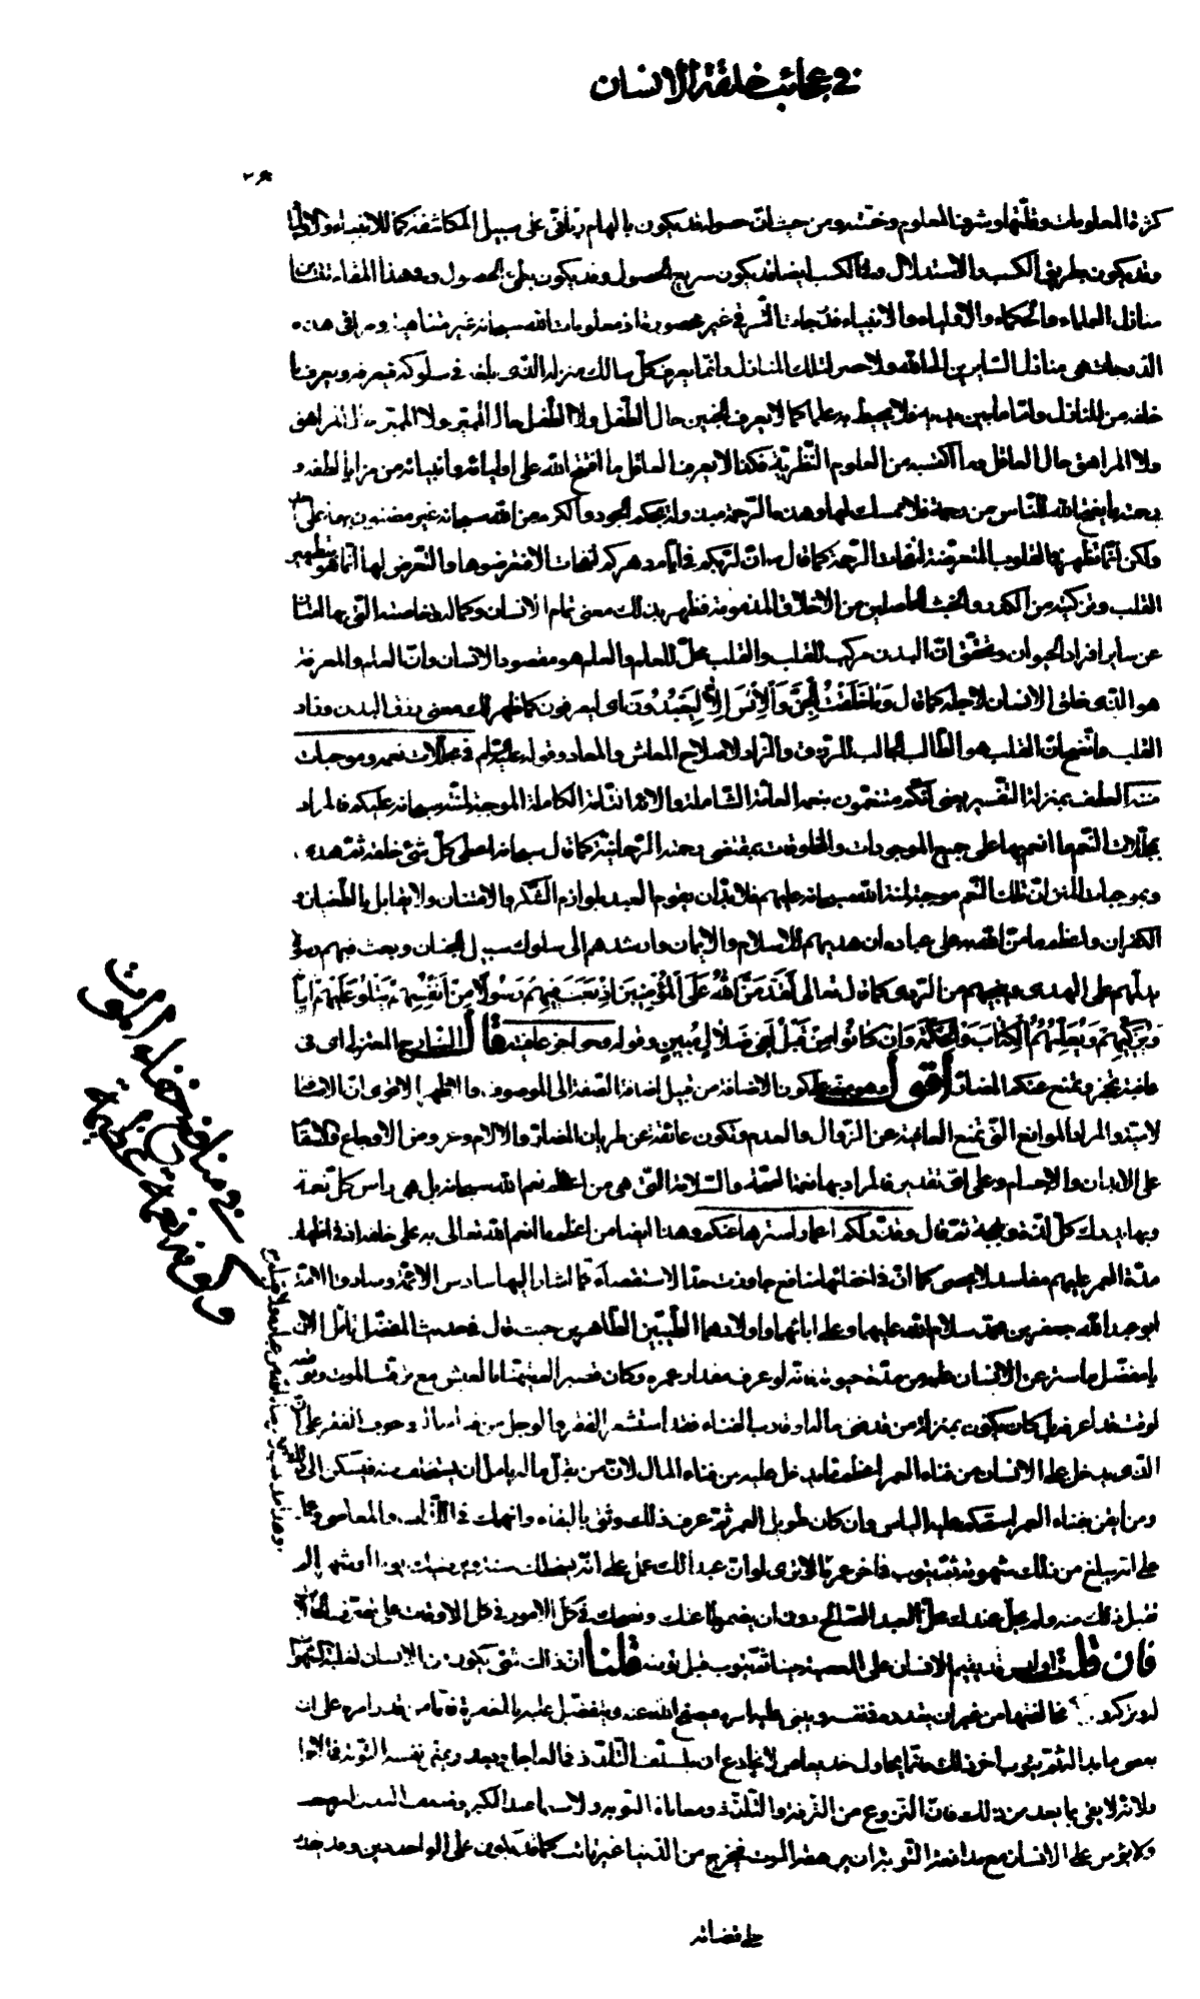 في عجائب خلقة الانسان
كثرة المعلومات وقلّتها وشرف المعلوم وخسّته ومن حيث انّ حصوله قد يكون بالهام ربّاني على سبيل المكاشفة كما للانبياء والاوليا
وقد يكون بطريق الكسب والاستدلال وفي الكسب ايضا قد يكون سريع الحصول وقد يكون بطيئ الحصول وبهذا المقام تتباين
منازل العلماء والحكماء والاولياء والانبياء فدرجات الترقي غير محصورة اذ معلومات الله سبحانه غير متناهية ومراقي هذه
الدرجات هي منازل السايرين الى الله ولا حصر لتلك المنازل وانّما يعرف كلّ سالك منزله الذي بلغه في سلوكه فيعرفه ويعرف ما
خلفه من المنازل وامّا ما بين يديه فلا يحيط به علما كما لا يعرف الجنين حال الطّفل ولا الطّفل حال المميّز ولا المميّز حال المراهق
ولا المراهق حال العاقل وما اكتسبه من العلوم النّظريّة فكذا لا يعرف العاقل ما افتتح الله على اوليائه وانبيائه من مزايا لطفه و
رحمته ما يفتح الله للنّاس من رحمة فلا ممسك لها وهذه الرّحمة مبذولة بحكم الجود والكرم من الله سبحانه غير مضنون بها على احد
ولكن انّما تظهر في القلوب المتعرّضة لنفحات الرّحمة كما قال انّ لربّكم في ايّام دهركم لنفحات الا فتعرضوا لها والتّعرض لها انّما هو بتطهير
القلب وتزكيته من الكدر والخبث الحاصلين من الاخلاق المذمومة فظهر بذلك معنى تمام الانسان وكماله وخاصته الّتي بها امتاز
عن ساير افراد الحيوان وتحقّق انّ البدن مركب للقلب والقلب محلّ للعلم والعلم هو مقصود الانسان وانّ العلم والمعرفة
هو الّذي خلق الانسان لاجله كما قال وَمٰا خَلَقْتُ الْجِنَّ وَالْاِنْسَ اِلّٰا لِيَعْبُدُونَ اي ليعرفون كما ظهر لك معنى بنفع البدن وزاد
القلب واتّضح انّ القلب هو الطّالب الجالب للرّزق والزّاد لاصلاح المعاش والمعاد وقوله عليه السّلام في مجلّلات نعمه وموجبات
مننه العطف بمنزلة التّفسير يعني انّكم متنعّمون بنعمه العامّة الشّاملة والائه التّامّة الكاملة الموجبة لمنّته سبحانه عليكم فالمراد
بمجلّلات النّعم ما انعم بها على جميع الموجودات والمخلوقات بمقتضى رحمته الرّحمانيّة كما قال سبحانه اعطى كلّ شيء خلقه ثمّ هدى
وبموجبات المنن انّ تلك النّعم موجبة لمنّة الله سبحانه عليهم فلا بدّ ان يقوم العبد بلوازم الشّكر والامتنان ولا يقابل بالطّغيان و
الكفران واعظم ما منّ الله به على عباده ان هديهم للاسلام والايمان وارشدهم الى سلوك سبيل الجنان وبعث فيهم رسولا
يدلّهم على الهدى وينجيهم من الرّدى كما قال تعالى لَقَدْ مَنَّ اللّٰهُ عَلَى الْمُؤْمِنِينَ اِذْ بَعَثَ فِيهِمْ رَسُولًا مِنْ اَنْفُسِهِمْ يَتْلُو عَلَيْهِمْ اٰيٰاتِهِ
وَيُزَكِّيهِمْ وَيُعَلِّمُهُمُ الْكِتٰابَ وَالْحِكْمَةَ وَاِنْ كٰانُوا مِنْ قَبْلُ لَفِي ضَلٰالٍ مُبِينٍ وقوله وحواجز عافيته قال الشّارح المعتزلي اي في
عافية تحجز وتمنع عنكم المضارّ اقول وهو مبني على كون الاضافة من قبيل اضافة الصّفة الى الموصوف والاظهر الاقوى انّ الاضافة
لاميّة والمراد الموانع الّتي تمنع العافية عن الزّوال والعدم وتكون عائقة عن طريان المضارّ والالام وعروض الاوجاع والاسقام
على الابدان والاجسام وعلى ايّ تقدير فالمراد بها نعمة الصّحة والسّلامة الّتي هي من اعظم نعم الله سبحانه بل هي راس كلّ نعمة
وبها يدرك كلّ لذّة وبهجة ثمّ قال وقدّر لكم اعمارا سترها عنكم وهذا ايضا من اعظم ما انعم الله تعالى به على خلقه اذ في اظهار
مدّة العمر عليهم مفاسد لا تحصى كما انّ في اخفائها منافع جاوزت حدّ الاستقصاء كما اشار اليها سادس الائمّة وصادق الامّة
ابو عبد الله جعفر بن محمّد سلام الله عليهما وعلى ابائهما واولادهما الطّيّبين الطّاهرين حيث قال في حديث المفضّل تامّل الان
يا مفضّل ما ستر عن الانسان علمه من مدّة حيوته فانّه لو عرف مقدار عمره وكان قصير العمر لم يتهنّا بالعيش مع ترقّب الموت وتوقّعه
لوقت قد عرفه بل كان يكون بمنزلة من قد فنى ماله او قارب الفناء فقد استشعر الفقر والوجل من فناء ماله وخوف الفقر على انّ
الّذي يدخل على الانسان من فناء العمر اعظم ممّا يدخل عليه من فناء المال لانّ من يقلّ ماله يامل ان يستخلف منه فيسكن الى ذلك
ومن ايقن بفناء العمر استحكم عليه الياس وان كان طويل العمر ثمّ عرف ذلك وثق بالبقاء وانهمك في اللّذّات والمعاصي وعمل
على انّه يبلغ من ذلك شهوته ثمّ يتوب في اخر عمره الا ترى لو انّ عبدا لك عمل على انّه يسخطك سنة ويرضيك يوما او شهرا لم
تقبل ذلك منه ولم يحلّ عندك محلّ العبد الصّالح دون ان يضمر طاعتك ونصحك في كلّ الامور في كلّ الاوقات على تصرّف الحالات
فان قلت او ليس قد يقيم الانسان على المعصية حينا ثمّ يتوب فتقبل توبته قلنا انّ ذلك شيء يكون من الانسان لغلبة الشّهوا
مخالفتها من غير ان يقدّره في نفسه ويبني عليه امره فيصفح الله عنه ويتفضّل عليه بالمغفرة فامّا من قدّر امره على ان
يعصي ما بدا له ثمّ يتوب اخر ذلك فانّما يحاول خديعة من لا يخادع بان يتسلّف التّلذّذ في العاجل ويعد ويمنّي نفسه التّوبة في الاجل
ولانّه لا يفي بما يعد من ذلك فانّ النّزوع من التّرفّه والتّلذّذ ومعاناة التّوبة ولا سيّما عند الكبر وضعف البدن امر صعب
ولا يؤمن على الانسان مع مدافعته التّوبة ان يرهقه الموت فيخرج من الدّنيا غير تائب كما قد يكون على الواحد دين وقد يقدر
على قضائه